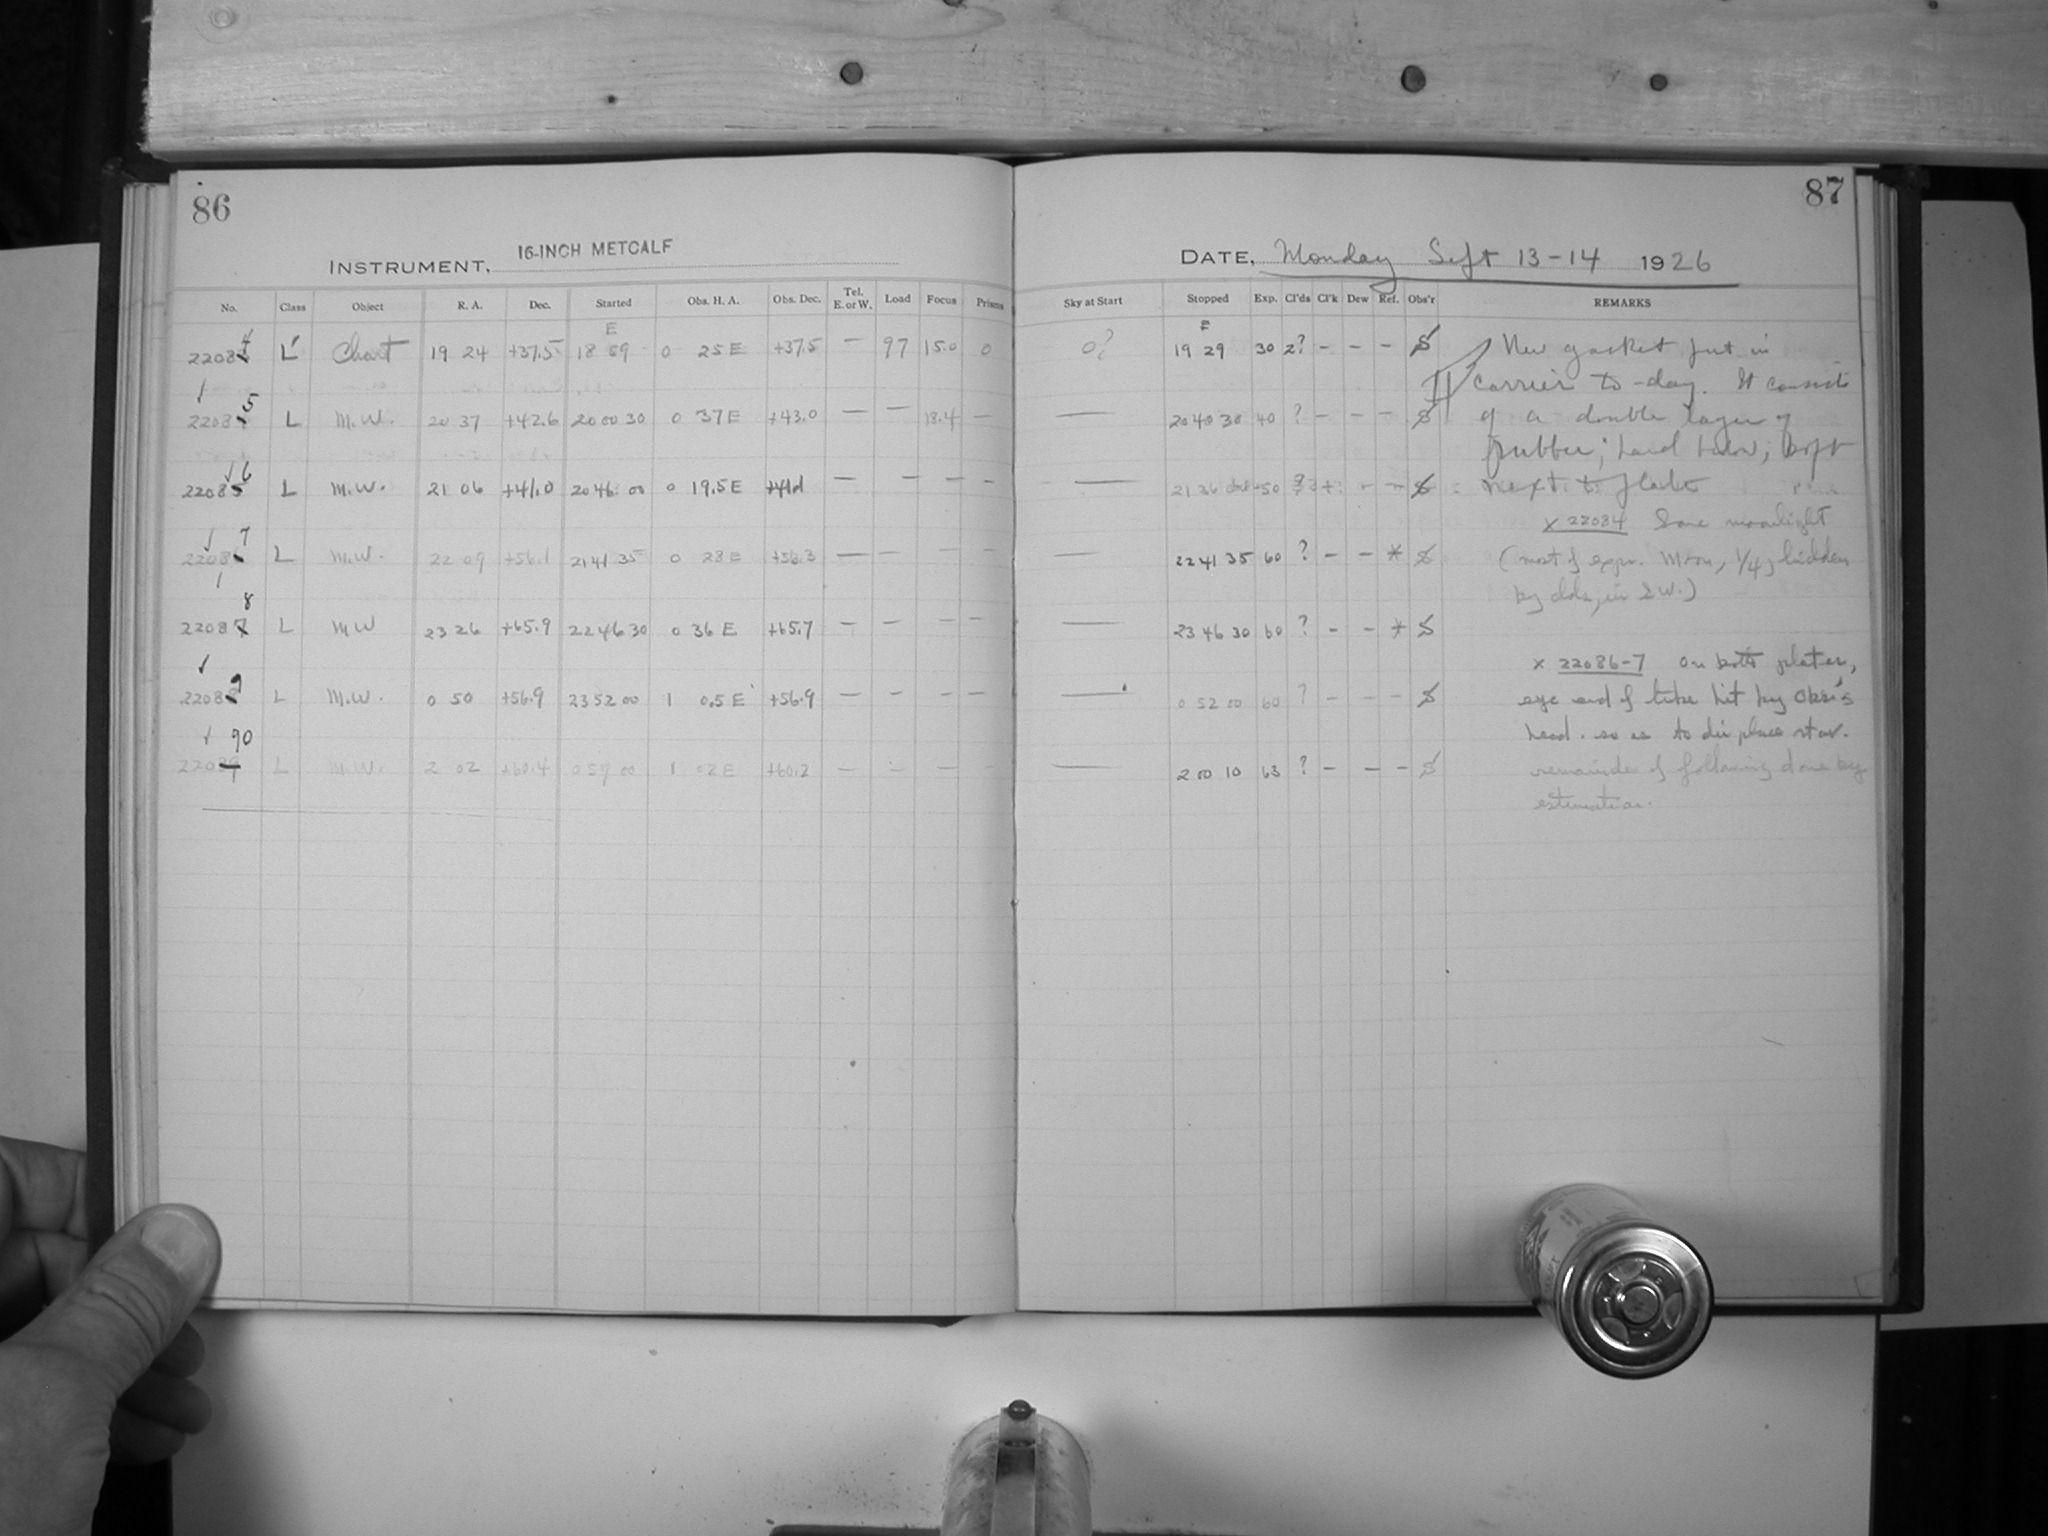 86
87
INSTRUMENT, 16-INCH METCALF
DATE, Monday Sept 13-14 1926
No. Class Object R. A. Dec. Started Obs. H. A. Obs. Dec. Tel. E. or W. Load Focus Prisms Sky at Start Stopped Exp. Cl'ds Cl'k Dew Ref. Obs'r REMARKS
E E
22084 L Chart 19 24 +37.5 18 59 0 25 E +37.5 — 97 15.0 0 0? 19 29 30 2? - - - S New gasket put in
carrier to-day. It consists
22085 L M.W. 20 37 +42.6 20 00 30 0 37 E +43.0 — — 18.4 — — 20 40 30 40 ? - - - S of a double layer of
rubber; hard below, soft
22086 L M.W. 21 06 +41.0 20 46 00 0 19.5 E +41.0 — — — — — 21 36 50 ? S next to plate
x 22084 Some moonlight
22087 L M.W. 22 09 +56.1 21 41 35 0 28 E +56.3 — — — — — 22 41 35 60 ? - - * S (most of expo. Moon, 1/4, hidden
by clds, in SW.)
22088 L M W 23 26 +65.9 22 46 30 0 36 E +65.7 — — — — — 23 46 30 60 ? - - * S
x 22086-7 On both plates,
22089 L M.W. 0 50 +56.9 23 52 00 1 0.5 E +56.9 — — — — — 0 52 00 60 ? - - - S eye end of tube hit by Obsr's
head so as to displace star.
22090 L M.W. 2 02 +60.4 0 57 00 1 02 E +60.2 — — — — — 2 00 10 63 ? - - - S remainder of following done by
estimation.